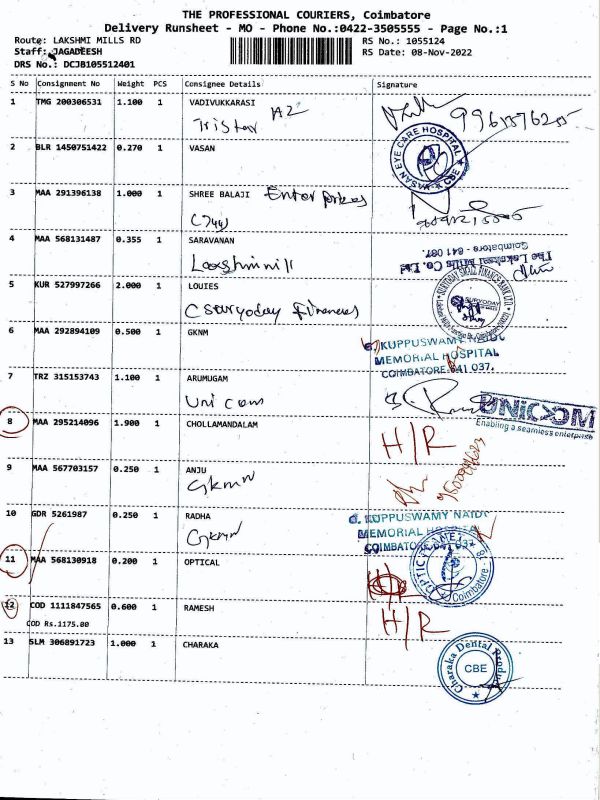 THE PROFESSIONAL COURIERS, Coimbatore
Delivery Runsheet - MO - Phone No.:0422-3505555 - Page No.:1
Route: LAKSHMI MILLS RD
RS No.: 1055124
Staff: JAGADEESH
RS Date: 08-Nov-2022
DRS No.: DCJB105512401
S No Consignment No Weight PCS Consignee Details Signature
1 TMG 200306531 1.100 1 VADIVUKKARASI
Tristar A2
2 BLR 1450751422 0.270 1 VASAN
VASAN EYE CARE HOSPITAL CBE
3 MAA 291396138 1.000 1 SHREE BALAJI Enterprises
4 MAA 568131487 0.355 1 SARAVANAN
Laxshmimill
The Lakshmi Mills Co. Ltd
Coimbatore - 641 037.
5 KUR 527997266 2.000 1 LOUIES
Csuryoday Finances
SURYODAY SMALL FINANCE BANK LTD.
SURYODAY
6 MAA 292894109 0.500 1 GKNM
G. KUPPUSWAMY NAIDU
MEMORIAL HOSPITAL
COIMBATORE. 641 037.
7 TRZ 315153743 1.100 1 ARUMUGAM
Unicom
UNICOM
Enabling a seamless enterprise
8 MAA 295214096 1.900 1 CHOLLAMANDALAM
H/R
9 MAA 567703157 0.250 1 ANJU
Gkmn
10 GDR 5261987 0.250 1 RADHA
Gkmn
G. KUPPUSWAMY NAIDU
MEMORIAL HOSPITAL
COIMBATORE 641 037
11 MAA 568130918 0.200 1 OPTICAL
OPTIC PLANET
Coimbatore - 18
12 COD 1111847565 0.600 1 RAMESH
COD Rs.1175.00
H/R
13 SLM 306891723 1.000 1 CHARAKA
Charaka Dental Products
CBE